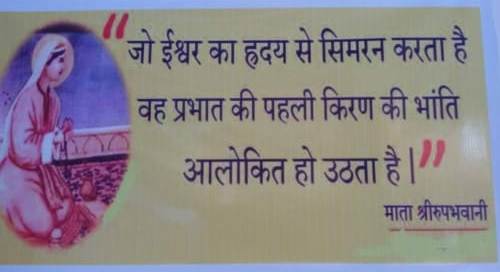 "जो ईश्वर का ह्रदय से सिमरन करता है
वह प्रभात की पहली किरण की भांति
आलोकित हो उठता है|"
माता श्रीरुपभवानी